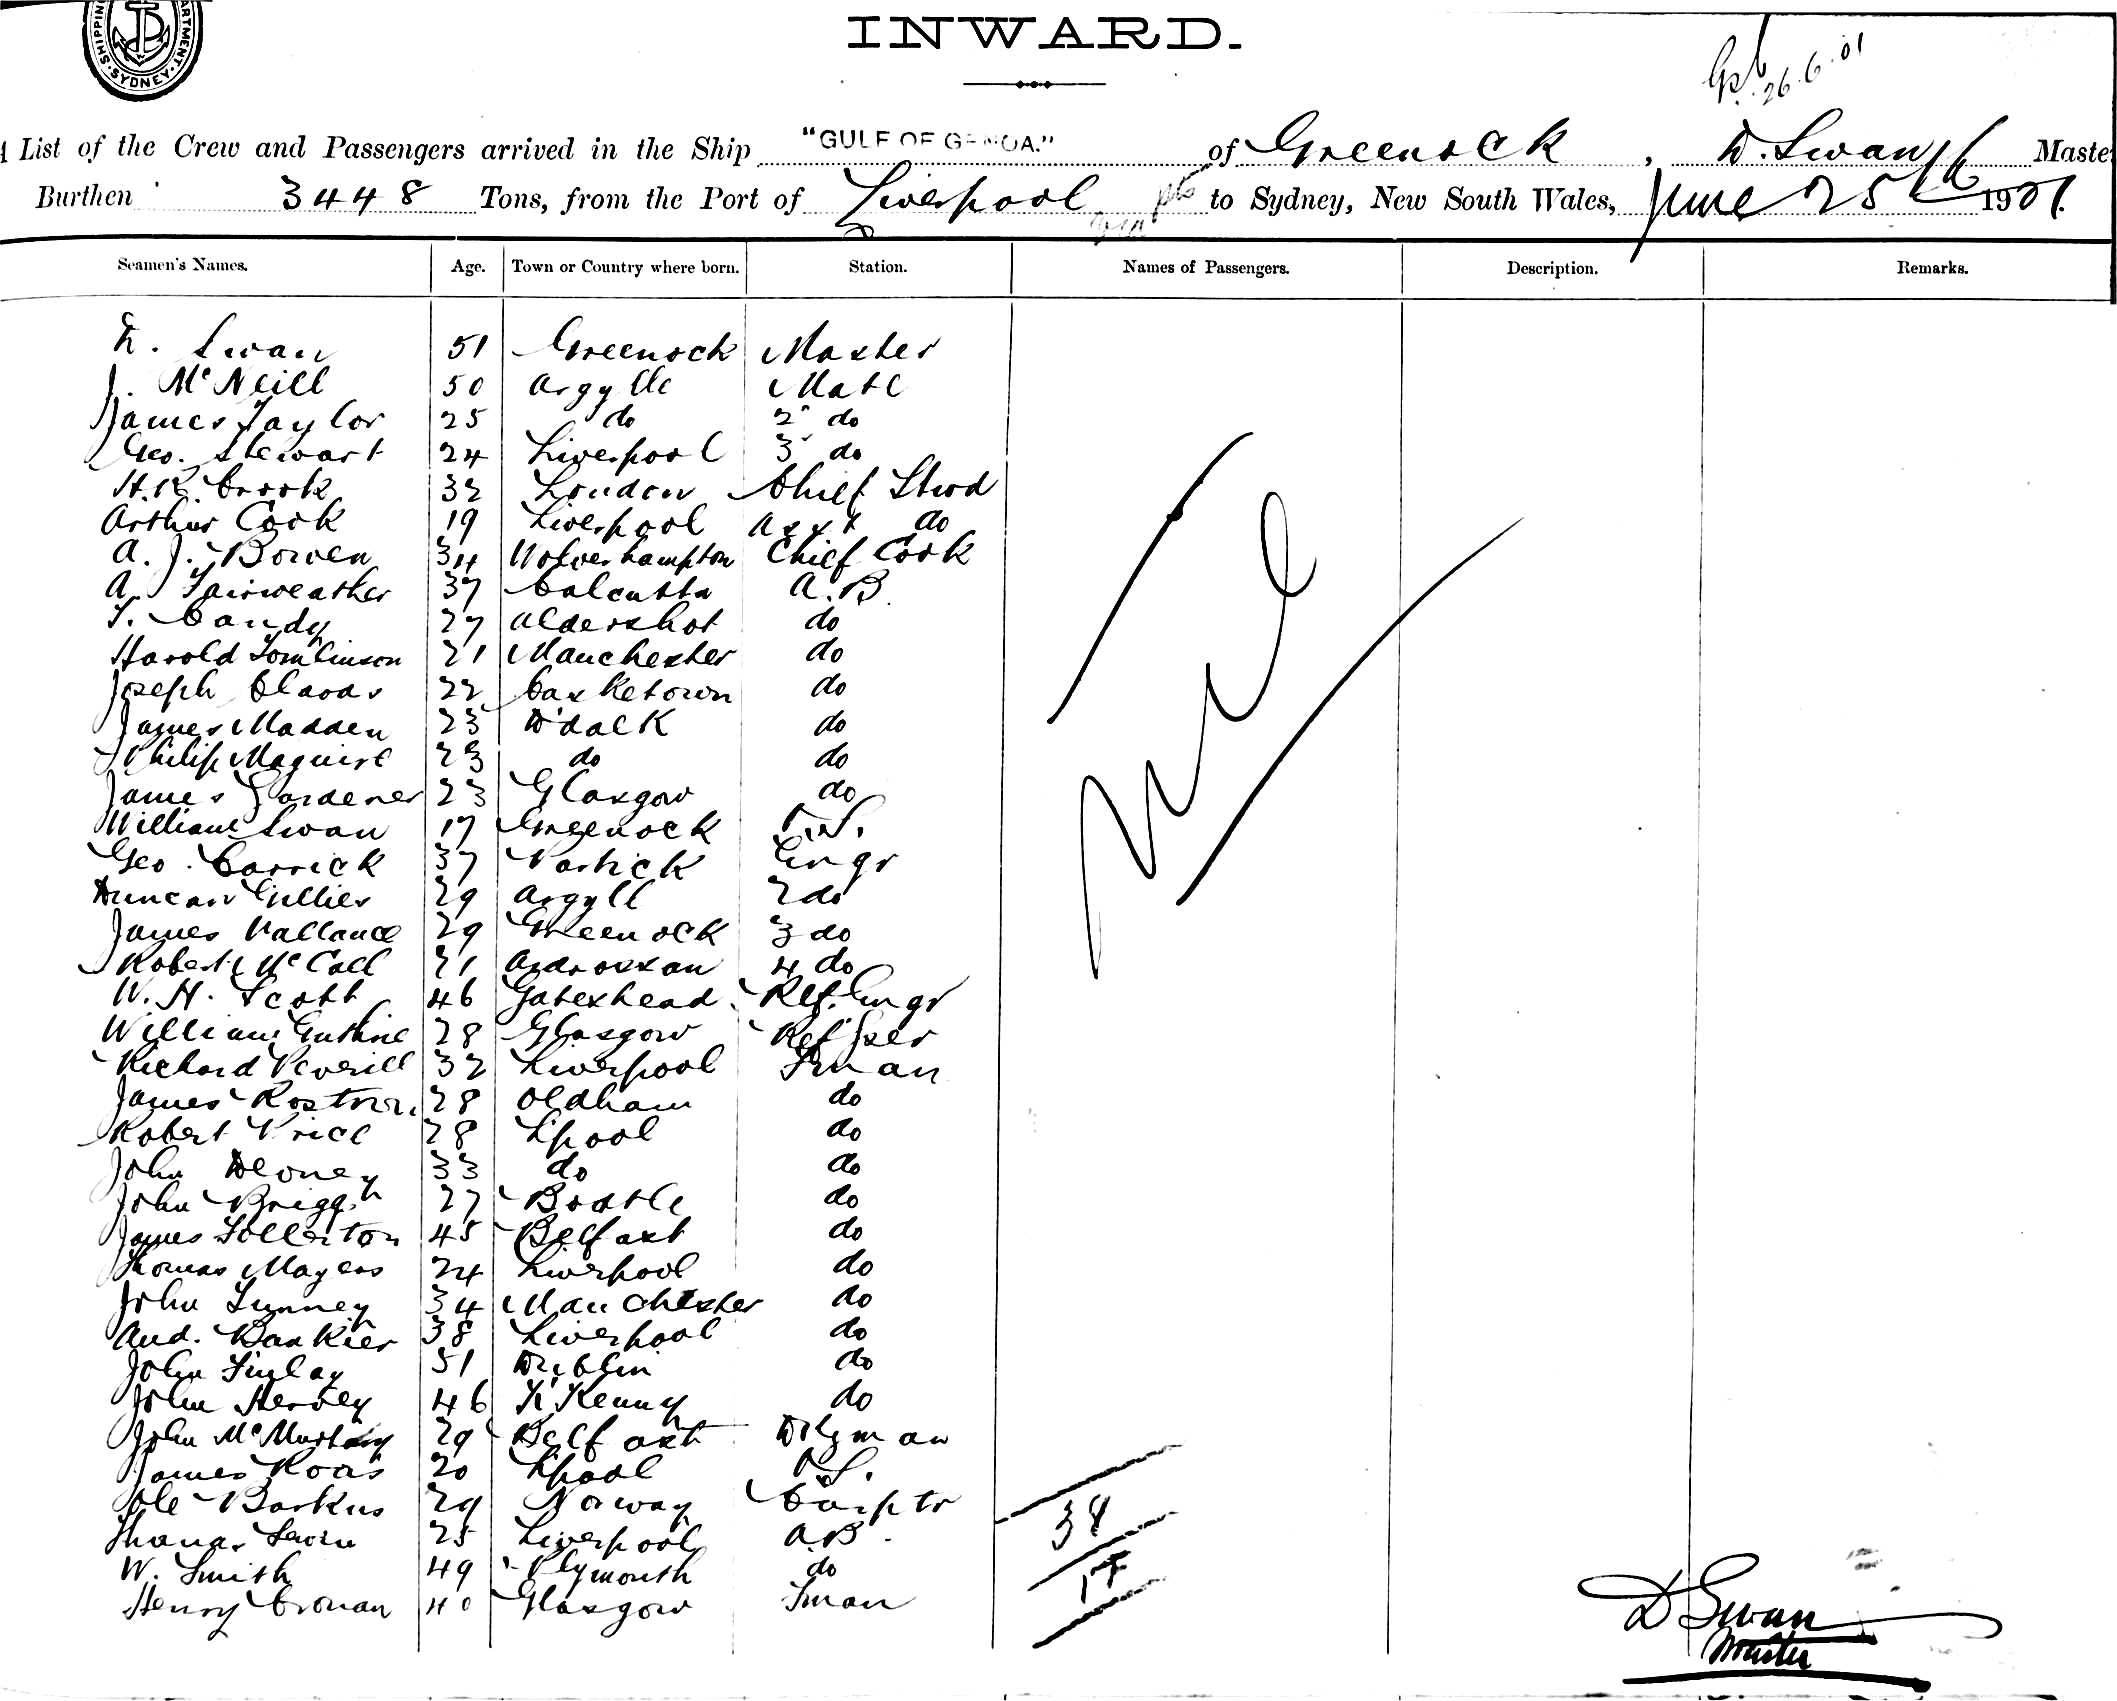 SHIPPING DEPARTMENT. SYDNEY
INWARD.
26.6.01
A List of the Crew and Passengers arrived in the Ship "GULF OF GENOA." of Greenock, D. Swan Maste
Burthen 3448 Tons, from the Port of Liverpool to Sydney, New South Wales, June 25 1901.
Seamen's Names. Age. Town or Country where born. Station. Names of Passengers. Description. Remarks.
D. Swan 51 Greenock Master
J. McNeill 50 Argylle Mate
James Taylor 25 do 2 do
Geo. Stewart 24 Liverpool 3 do
H.R. Crook 32 London Chief Stwd
Arthur Cook 19 Liverpool Asst do
A. J. Bowen 34 Wolverhampton Chief Cook
A. Fairweather 37 Calcutta A.B.
T. Candy 27 Aldershot do
Harold Tomlinson 21 Manchester do
Joseph 22 Casketown do
James Madden 23 D'dalk do
Philip Maguire 23 do do
James Gardener 23 Glasgow do
William Swan 17 Greenock O.S.
Geo. Carrick 37 Partick Engr
Duncan Gillies 29 Argyll 2 do
James Vallance 29 Greenock 3 do
Robert McCall 21 Ardrossan 4 do
W. H. Scott 46 Gateshead Ref. Engr
William Guthrie 28 Glasgow Ref
Richard Peverill 32 Liverpool Fman
James Rostron 28 Oldham do
Robert Price 28 L'pool do
John Deoney 33 do do
John Briggs 27 Bootle do
James Follerton 45 Belfast do
Thomas Mayers 24 Liverpool do
John Lunney 34 Manchester do
And. Bankier 38 Liverpool do
John Finlay 51 Dublin do
John Hervey 46 K'Kenny do
John McMurtry 29 Belfast Dkyman
James Ross 20 L'pool O.S.
Ole Barkus 29 Norway Carptr
Thomas 25 Liverpool A.B.
W. Smith 49 Plymouth do
Henry Cronan 40 Glasgow Fman
Nil
38
17
D Swan
Master